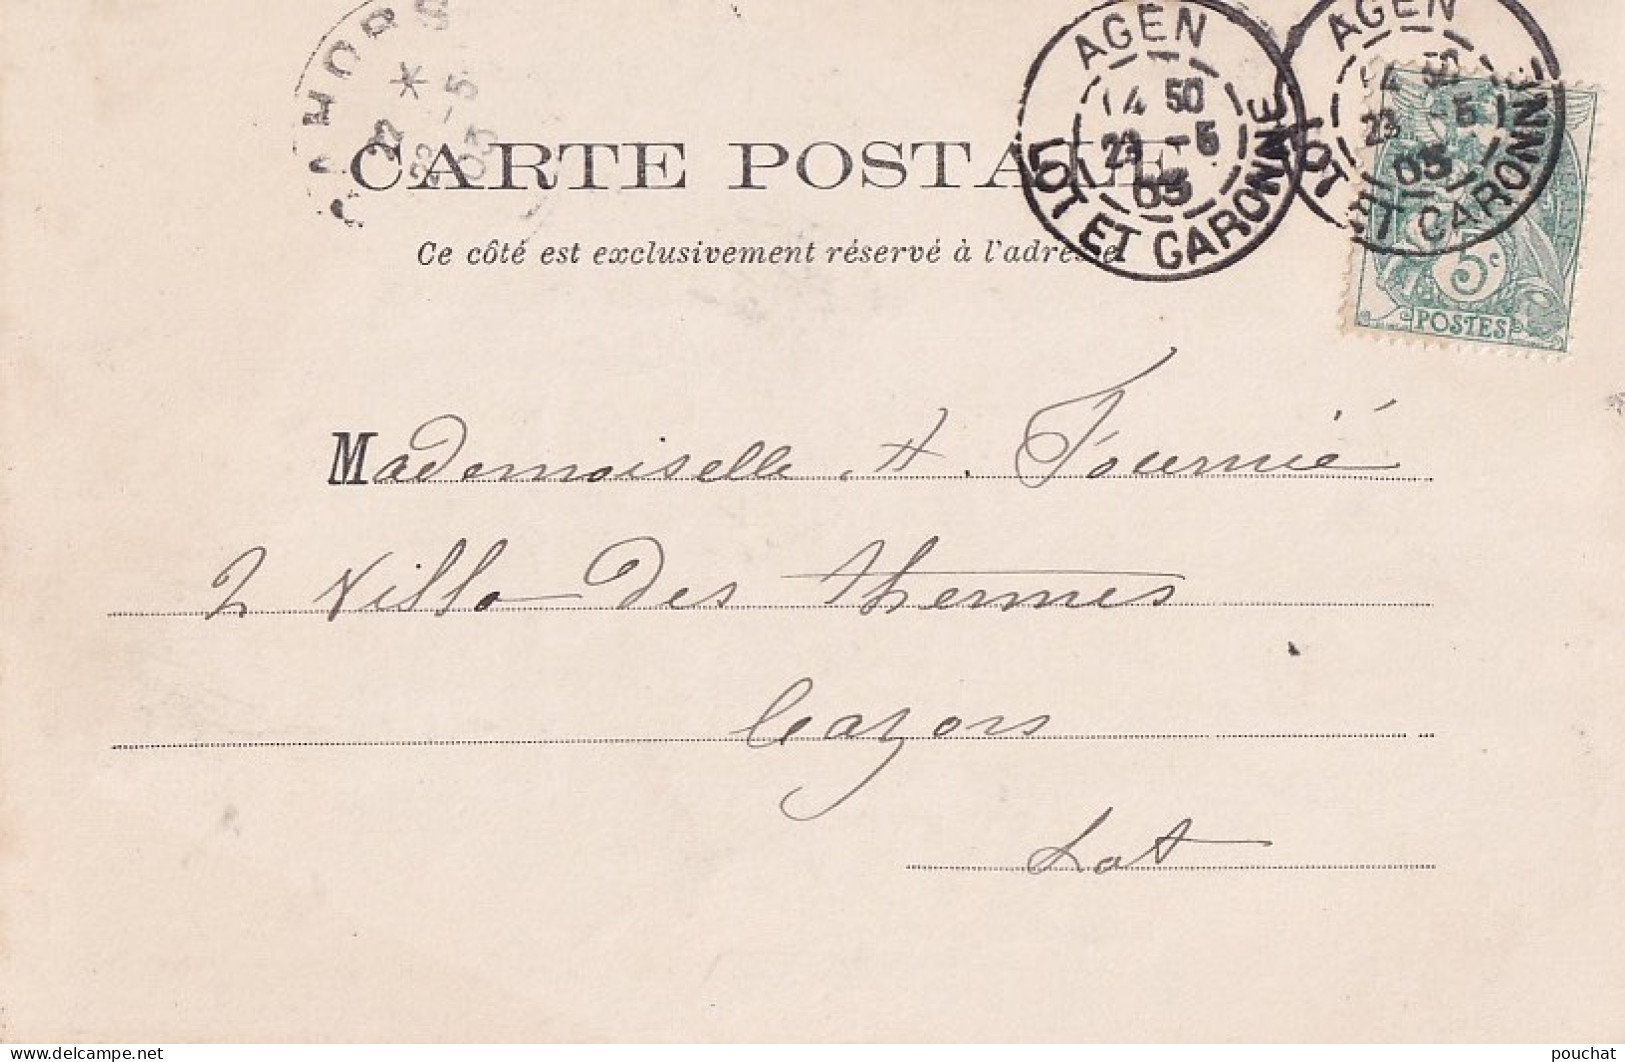 CAHORS
22 * 23 -5 03
AGEN
14 50
23 -5
03
LOT ET GARONNE
AGEN
14 50
23 -5
03
LOT ET GARONNE
5c
POSTES
CARTE POSTALE
Ce côté est exclusivement réservé à l'adresse
Mademoiselle A. Fournié
2 Villa des thermes
Cayors
Lot
pouchat